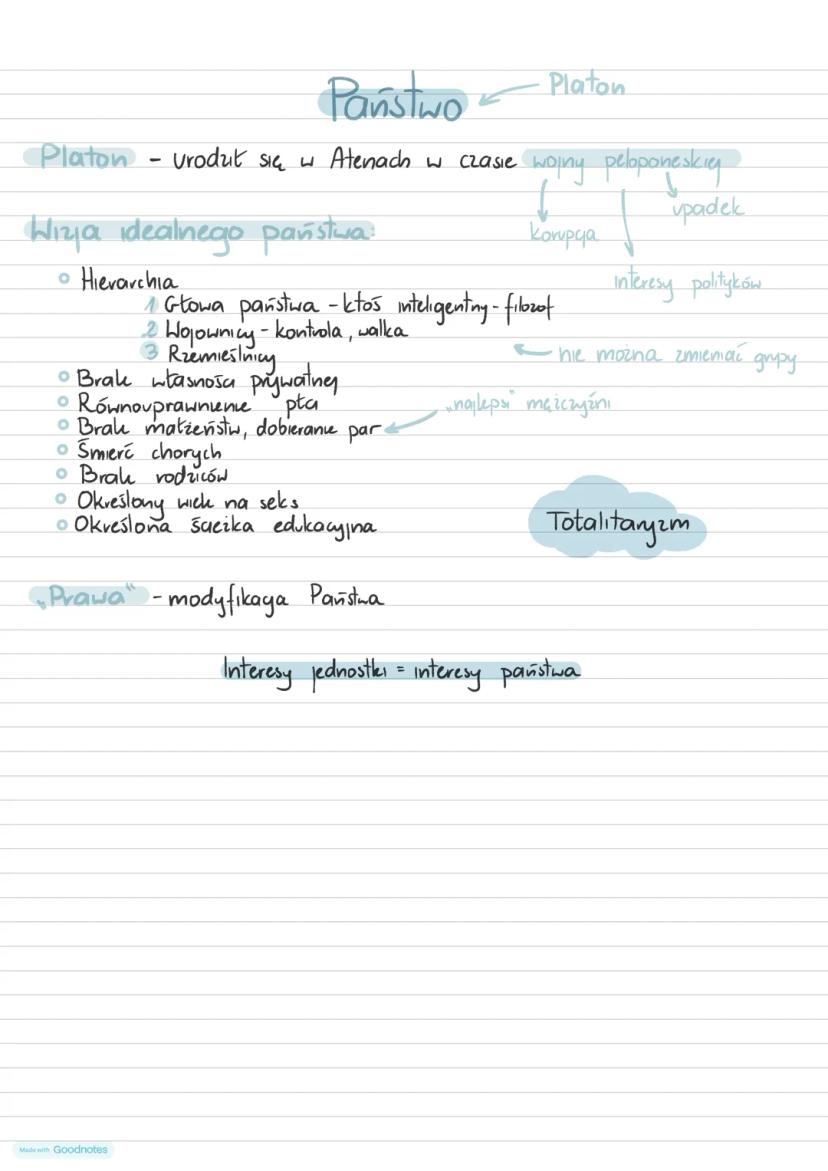 Państwo
Platon
Platon - urodził się w Atenach w czasie wojny peloponeskiej
korupcja
upadek
interesy polityków
Wizja idealnego państwa:
Hierarchia
1 Głowa państwa - ktoś inteligentny - filozof
2 Wojownicy - kontrola, walka
3 Rzemieślnicy
nie można zmieniać grupy
Brak własności prywatnej
Równouprawnienie płci
Brak małżeństw, dobieranie par
„najlepsi" mężczyźni
Śmierć chorych
Brak rodziców
Określony wiek na seks
Określona ścieżka edukacyjna
Totalitaryzm
„Prawa" - modyfikacja Państwa
Interesy jednostki = interesy państwa
Made with Goodnotes